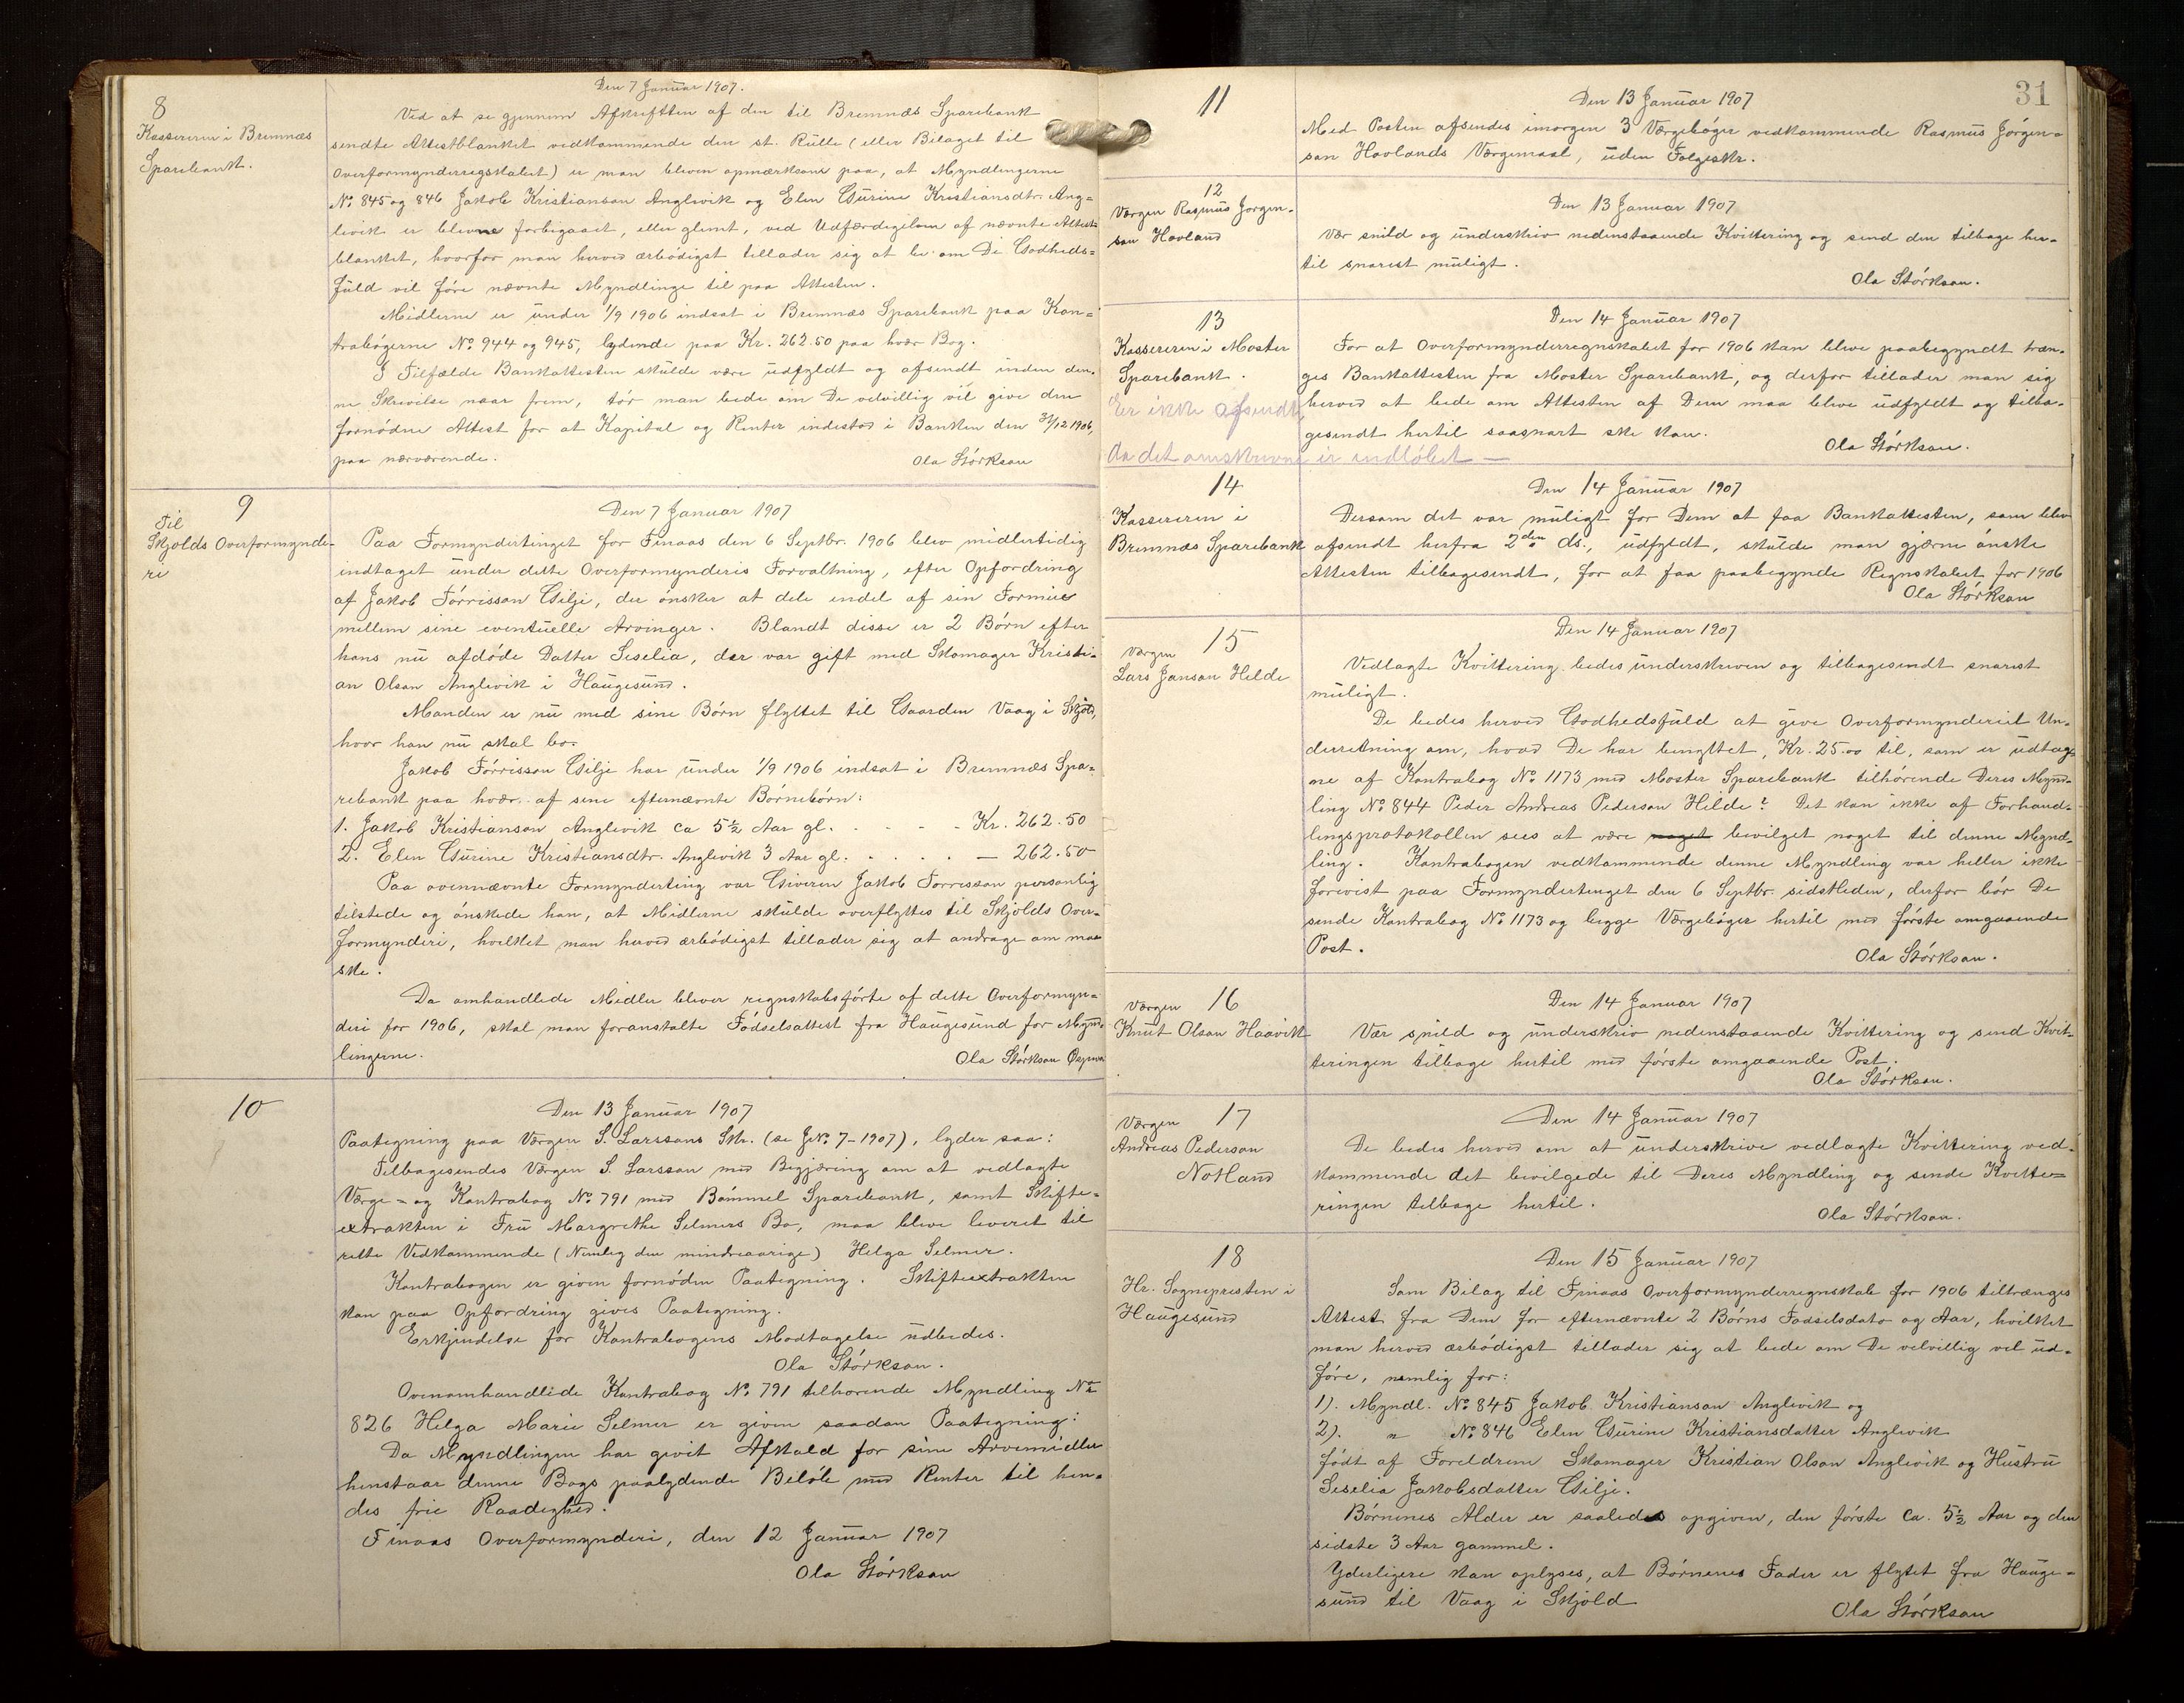 8
Kassereren i Bremnæs
Sparebank.
Den 7 Januar 1907.
Ved at se gjennem Afskriften af den til Bremnæs Sparebank
sendte Attestblanket vedkommende den st. Rulle (eller Bilaget til
Overformynderregnskabet) er man bleven opmærksom paa, at Myndlingerne
No. 845 og 846 Jakob Kristianson Anglevik og Elen Gurine Kristiansdtr. Ang=
levik er blevne forbigaaet, eller glemt, ved Udfærdigelsen af nævnte Attest-
blanket, hvorfor man herved ærbödigst tillader sig at be om De Godheds=
fuld vil före nævnte Myndlinge til paa Attesten.
Midlerne er under 1/9 1906 indsat i Bremnæs Sparebank paa Kon=
trabögerne No. 944 og 945, lydende paa Kr. 262.50 paa hver Bog.
I Tilfælde Bankattesten skulde være udfyldt og afsendt inden den-
ne Skrivelse naar frem, tör man bede om De velvillig vil give den
fornödne Attest for at Kapital og Renter indestod i Banken den 31/12 1906,
paa nærværende.
Ola Störkson
9
Til
Skjolds Overformynde-
ri
Den 7 Januar 1907
Paa Formyndertinget for Finaas den 6 Septbr. 1906 blev midlertidig
indtaget under dette Overformynderis Forvaltning, efter Opfordring
af Jakob Törrisson Gilje, der önsker at dele endel af sin Formue
mellem sine eventuelle Arvinger. Blandt disse er 2 Börn efter
hans nu afdöde Datter Seselia, der var gift med Skomager Kristi-
an Olson Anglevik i Haugesund.
Manden er nu med sine Börn flyttet til Gaarden Vaag i Skjold,
hvor han nu skal bo.
Jakob Törrisson Gilje har under 1/9 1906 indsat i Bremnæs Spa-
rebank paa hver af sine efternævnte Börnebörn:
1. Jakob Kristianson Anglevik ca 5½ Aar gl. . - - - Kr. 262.50
2. Elen Gurine Kristiansdtr. Anglevik 3 Aar gl. . . . . — 262.50
Paa ovennævnte Formynderting var Giveren Jakob Torrisson personlig
tilstede og önskede han, at Midlerne skulde overflyttes til Skjolds Over-
formynderi, hvilket man herved ærbödigst tillader sig at andrage om maa
ske.
Da omhandlede Midler bliver regnskabsförte af dette Overformyn-
deri for 1906, skal man foranstalte Födselsattest fra Haugesund for Mynd-
lingerne.
Ola Störkson
10
Den 13 Januar 1907
Paategning paa Værgen S. Larssons Skr. (se J.No. 7-1907), lyder saa:
Tilbagesendes Værgen S. Larsson med Begjæring om at vedlagte
Værge- og Kontrabog No. 791 med Bömmel Sparebank, samt Skifte-
extrakten i Fru Margrethe Selmers Bo, maa blive leveret til
rette Vedkommende (Nemlig den mindreaarige) Helga Selmer.
Kontrabogen er given fornöden Paategning. Skifteextrakten
kan paa Opfordring gives Paategning.
Erkjendelse for Kontrabogens Modtagelse udbedes.
Ola Störkson.
Ovenomhandlede Kontrabog No. 791 tilhorende Myndling No.
826 Helga Marie Selmer er given saadan Paategning:
Da Myndlingen har givet Afkald for sine Arvemidler
henstaar denne Bogs paalydende Belöb med Renter til hen-
des frie Raadighed.
Finaas Overformynderi, den 12 Januar 1907
Ola Störkson
31
11
Den 13 Januar 1907
Med Posten afsendes imorgen 3 Værgeböger vedkommende Rasmus Jörgen-
son Hovlands Værgemaal, uden Følgeskr.
12
Værgen Rasmus Jorgen-
son Hovland
Den 13 Januar 1907
Vær snild og underskriv nedenstaaende Kvittering og send den tilbage her-
til snarest muligt.
Ola Störkson.
13
Kassereren i Moster
Sparebank.
Er ikke afsendt
da det omskrevne er indlöbet —
Den 14 Januar 1907
For at Overformynderregnskabet for 1906 kan blive paabegyndt træn-
ges Bankattesten fra Moster Sparebank, og derfor tillader man sig
herved at bede om Attesten af Dem maa blive udfyldt og tilba-
gesendt hertil saasnart ske kan.
Ola Störkson.
14
Kassereren i
Bremnæs Sparebank
Den 14 Januar 1907
Dersom det var muligt for Dem at faa Bankattesten, som blev
afsendt herfra 2den ds., udfyldt, skulde man gjærne önske
Attesten tilbagesendt, for at faa paabegynde Regnskabet for 1906
Ola Störkson
15
Værgen
Lars Janson Helde
Den 14 Januar 1907
Vedlagte Kvittering bedes underskreven og tilbagesendt snarest
muligt.
De bedes herved Godhedsfuld at give Overformynderiet Un-
derretning om, hvad De har benyttet, Kr. 25.00 til, som er udtag-
ne af Kontrabog No. 1173 med Moster Sparebank tilhörende Deres Mynd-
ling No. 844 Peder Andreas Pederson Hilde? Det kan ikke af Forhand-
lingsprotokollen sees at være noget bevilget noget til denne Mynd-
ling. Kontrabogen vedkommende denne Myndling var heller ikke
forevist paa Formyndertinget den 6 Septbr. sidstleden, derfor bör De
sende Kontrabog No. 1173 og begge Værgeböger hertil med förste omgaaende
Post.
Ola Störkson.
16
Værgen
Knut Olson Haavik
Den 14 Januar 1907
Vær snild og underskriv nedenstaaende Kvittering og send Kvit-
teringen tilbage hertil med förste omgaaende Post.
Ola Störkson.
17
Værgen
Andreas Pederson
Notland
Den 14 Januar 1907
De bedes herved om at underskrive vedlagte Kvittering ved-
kommende det bevilgede til Deres Myndling og sende Kvitte=
ringen tilbage hertil.
Ola Störkson.
18
Hr. Sognepresten i
Haugesund
Den 15 Januar 1907
Som Bilag til Finaas Overformynderregnskab for 1906 tiltrænges
Attest fra Dem for efternævnte 2 Börns Fødselsdato og Aar, hvilket
man herved ærbödigst tillader sig at bede om De velvillig vil ud-
före, nemlig for:
1). Myndl. No. 845 Jakob Kristianson Anglevik og
2). " No. 846 Elen Gurine Kristiansdatter Anglevik
födt af Foreldrene Skomager Kristian Olson Anglevik og Hustru
Seselia Jakobsdatter Gilje.
Börnenes Alder er saaledes opgiven, den förste ca. 5½ Aar og den
sidste 3 Aar gammel.
Yderligere kan oplyses, at Börnenes Fader er flytet fra Hauge-
sund til Vaag i Skjold
Ola Störkson